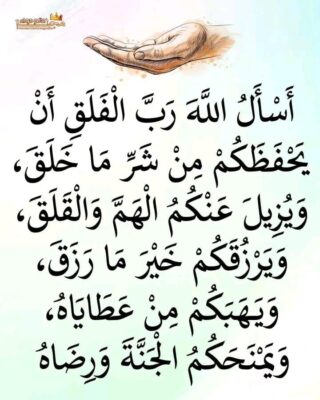 أَسْأَلُ اللَّهَ رَبَّ الْفَلَقِ أَنْ
يَحْفَظَكُمْ مِنْ شَرِّ مَا خَلَقَ،
وَيُزِيلَ عَنْكُمُ الْهَمَّ وَالْقَلَقَ،
وَيَرْزُقَكُمْ خَيْرَ مَا رَزَقَ،
وَيَهَبَكُمْ مِنْ عَطَايَاهُ،
وَيَمْنَحَكُمُ الْجَنَّةَ وَرِضَاهُ